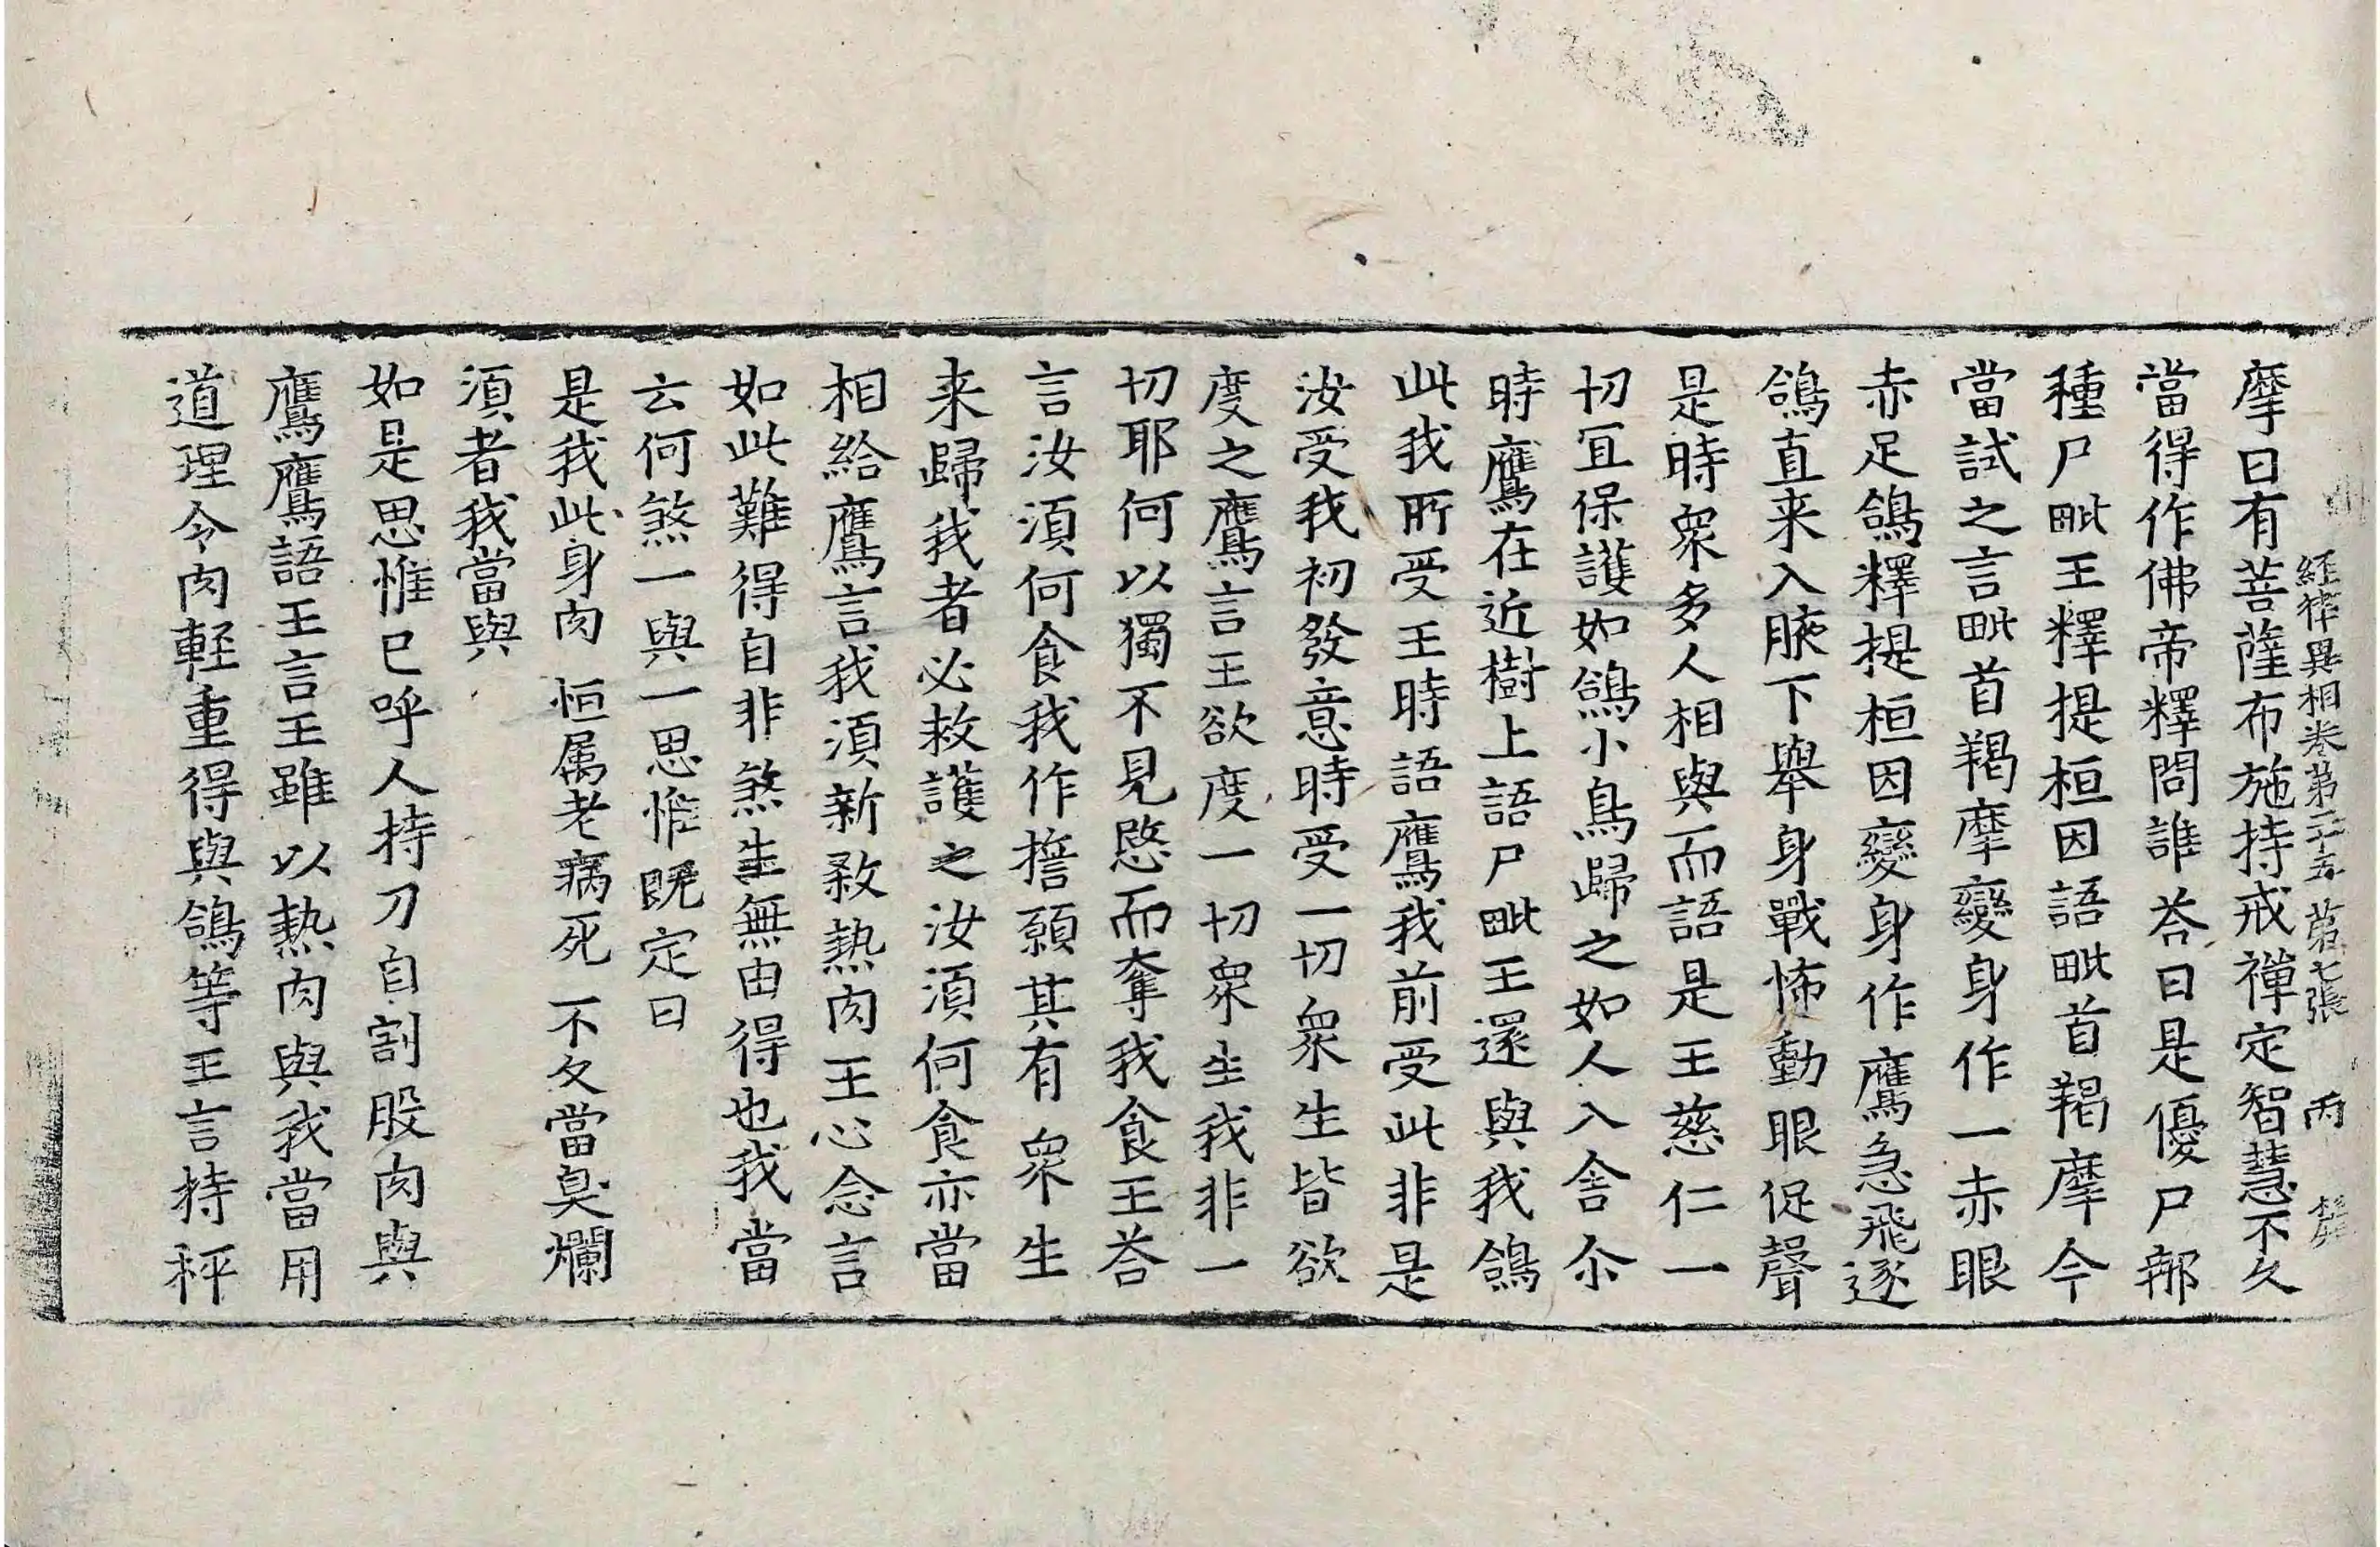 經律異相卷第二十五 第七張 丙
摩曰有菩薩布施持戒禪定智慧不久
當得作佛帝釋問誰荅曰是優尸那
種尸毗王釋提桓因語毗首羯摩今
當試之言毗首羯摩變身作一赤眼
赤足鴿釋提桓因變身作鷹急飛逐
鴿直来入腋下舉身戰怖動眼促聲
是時衆多人相與而語是王慈仁一
切冝保護如鴿小鳥歸之如人入舍尒
時鷹在近樹上語尸毗王還與我鴿
此我所受王時語鷹我前受此非是
汝受我初發意時受一切衆生皆欲
度之鷹言王欲度一切衆生我非一
切耶何以獨不見愍而奪我食王荅
言汝湏何食我作擔願其有衆生
来歸我者必救護之汝湏何食亦當
相給鷹言我湏新敎熱肉王心念言
如此難得自非煞生無由得也我當
云何煞一與一思惟旣定曰
是我此身肉恒属老病死不久當臭爛
湏者我當與
如是思惟已呼人持刀自割股肉與
鷹鷹語王言王雖以熱肉與我當用
道理令肉軽重得與鴿等王言持秤